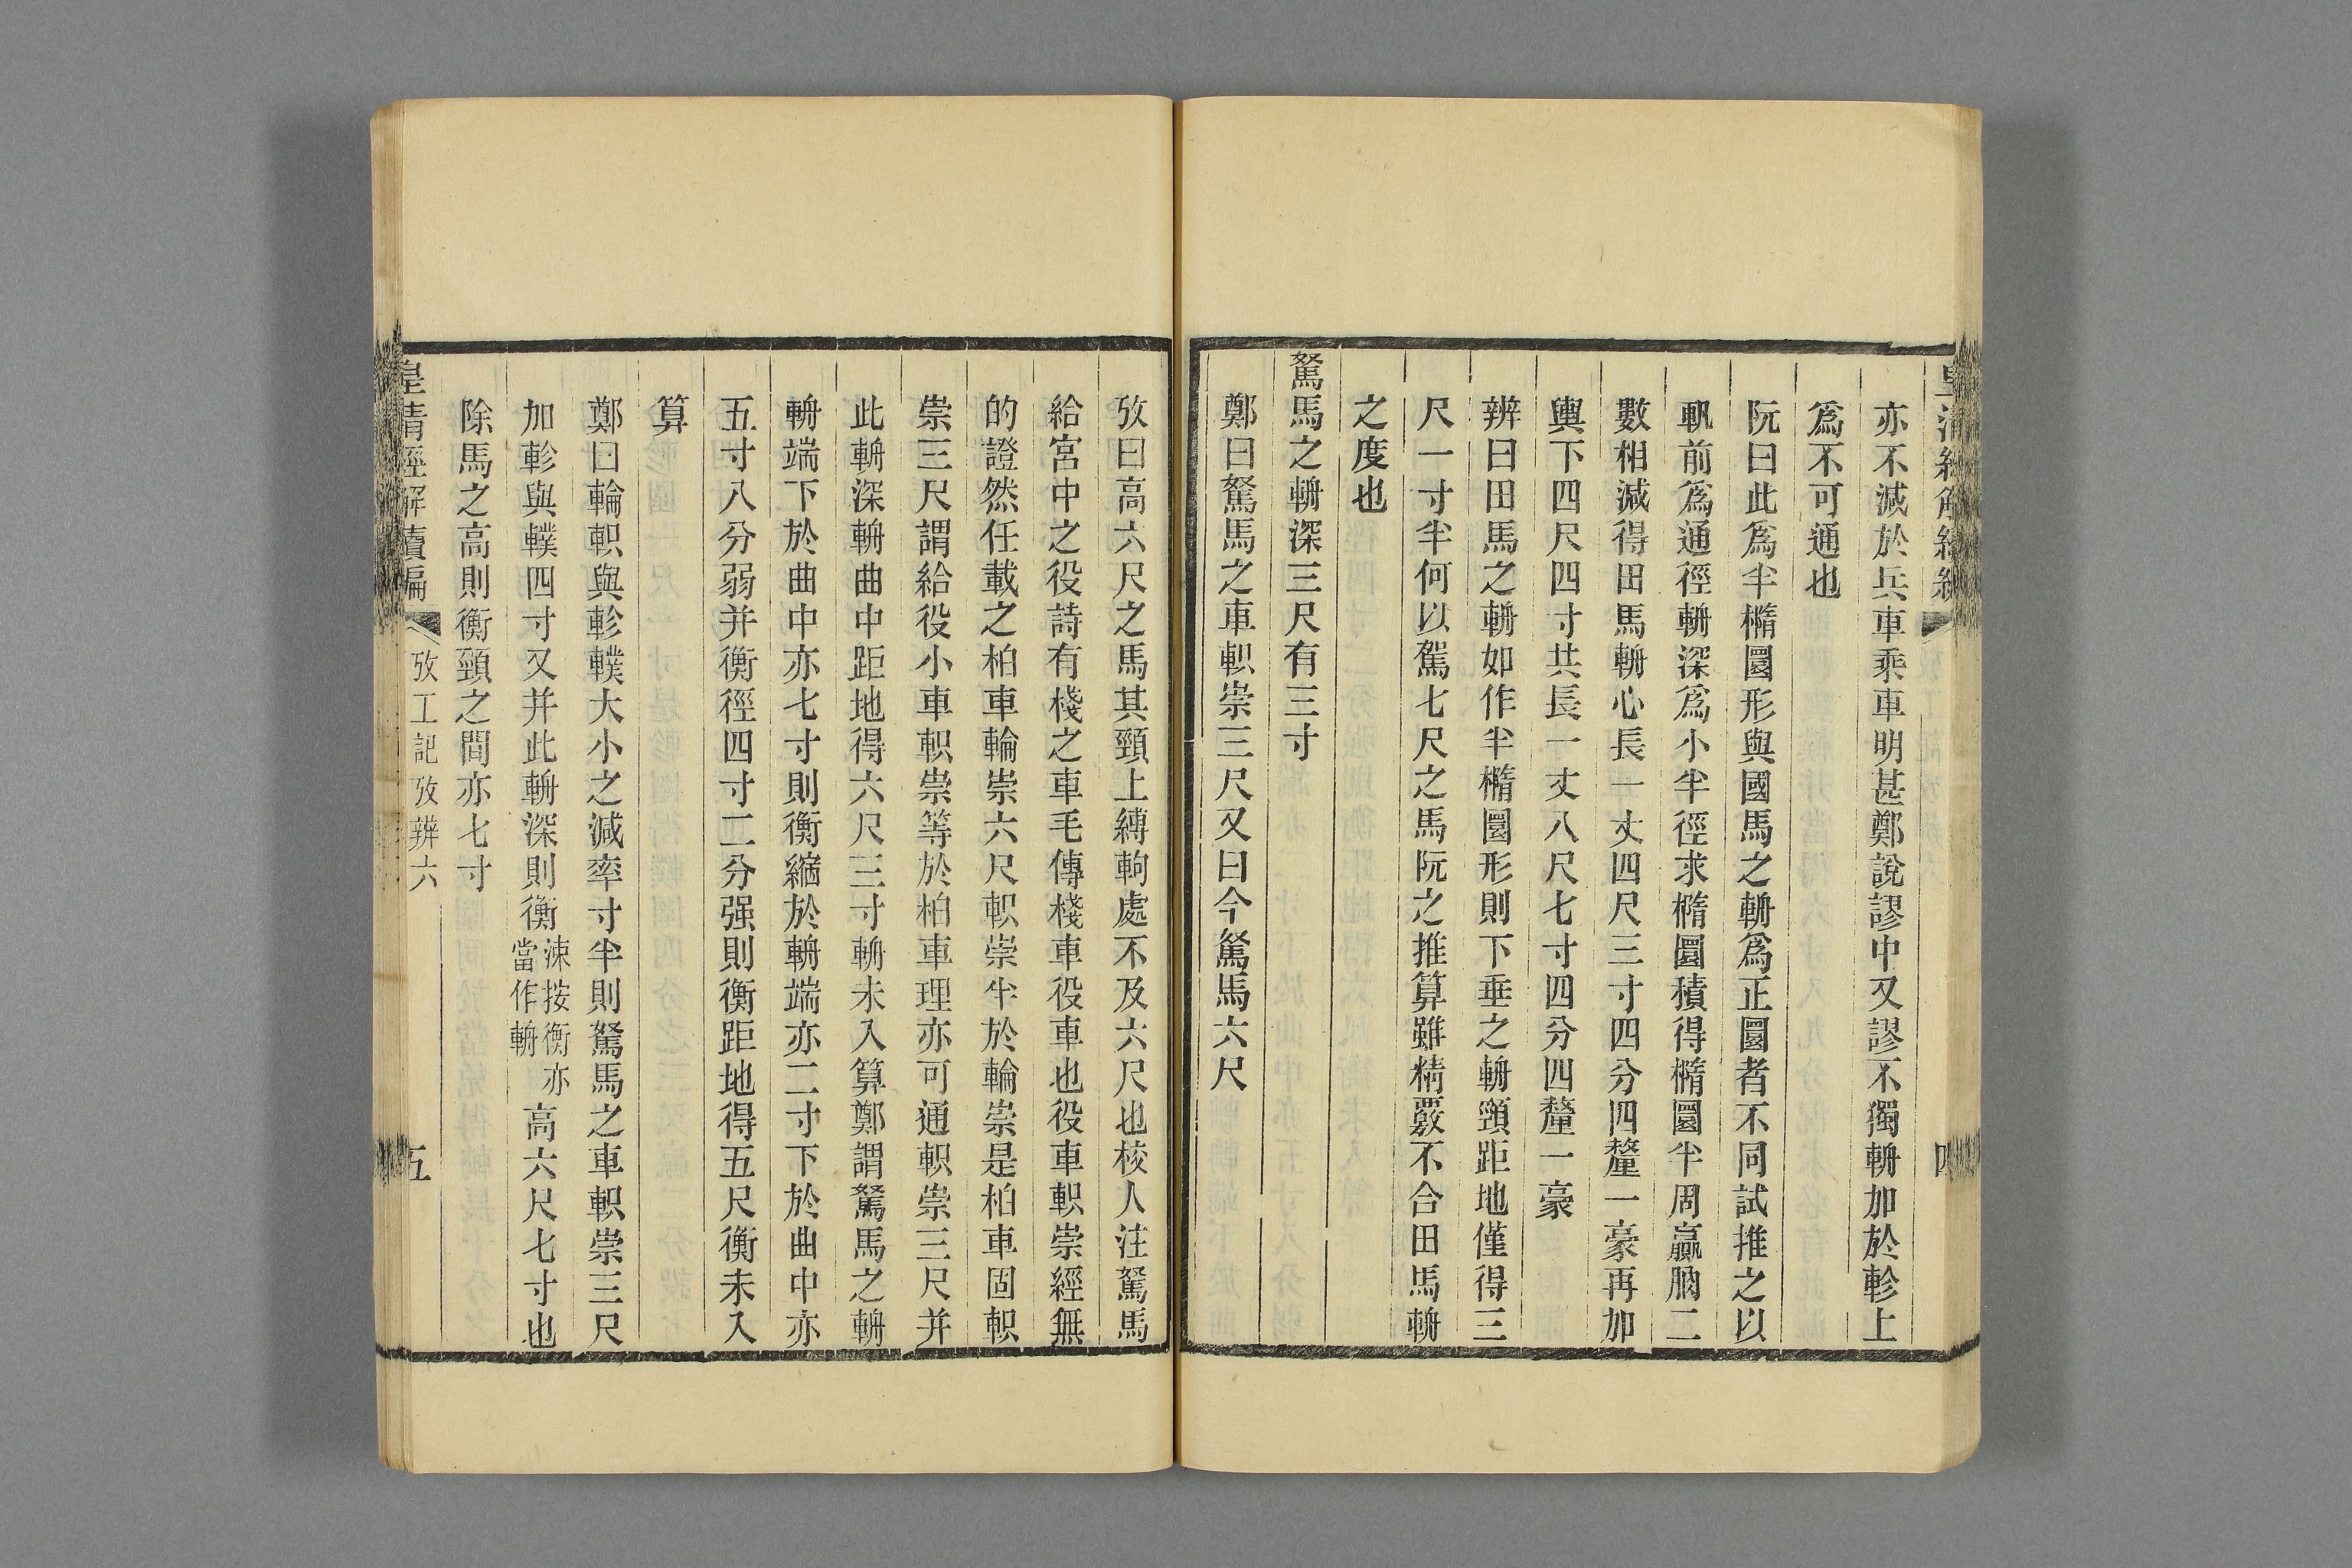 亦不減於兵車乘車明甚鄭說謬中又謬不獨輈加於軫上
爲不可通也
阮曰此爲半橢圜形與國馬之輈爲正圜者不同試推之以
軓前爲通徑輈深爲小半徑求橢圜積得橢圜半周贏朒二
數相減得田馬輈心長一丈四尺三寸四分四釐一豪再加
輿下四尺四寸共長一丈八尺七寸四分四釐一豪
辨曰田馬之輈如作半橢圜形則下垂之輈頸距地僅得三
尺一寸半何以駕七尺之馬阮之推算雖精覈不合田馬輈
之度也
駑馬之輈深三尺有三寸
鄭曰駑馬之車軹崇三尺又曰今駑馬六尺
攷曰高六尺之馬其頸上縛軥處不及六尺也校人注駑馬
給宮中之役詩有棧之車毛傳棧車役車也役車軹崇經無
的證然任載之柏車輪崇六尺軹崇半於輪崇是柏車固軹
崇三尺謂給役小車軹崇等於柏車理亦可通軹崇三尺并
此輈深輈曲中距地得六尺三寸輈未入算鄭謂駑馬之輈
輈端下於曲中亦七寸則衡縮於輈端亦二寸下於曲中亦
五寸八分弱并衡徑四寸二分强則衡距地得五尺衡未入
算
鄭曰輪軹與軫轐大小之減率寸半則駑馬之車軹崇三尺
加軫與轐四寸又并此輈深則衡涑按衡亦當作輈高六尺七寸也
除馬之高則衡頸之間亦七寸
皇清經解續編
攷工記攷辨六
五